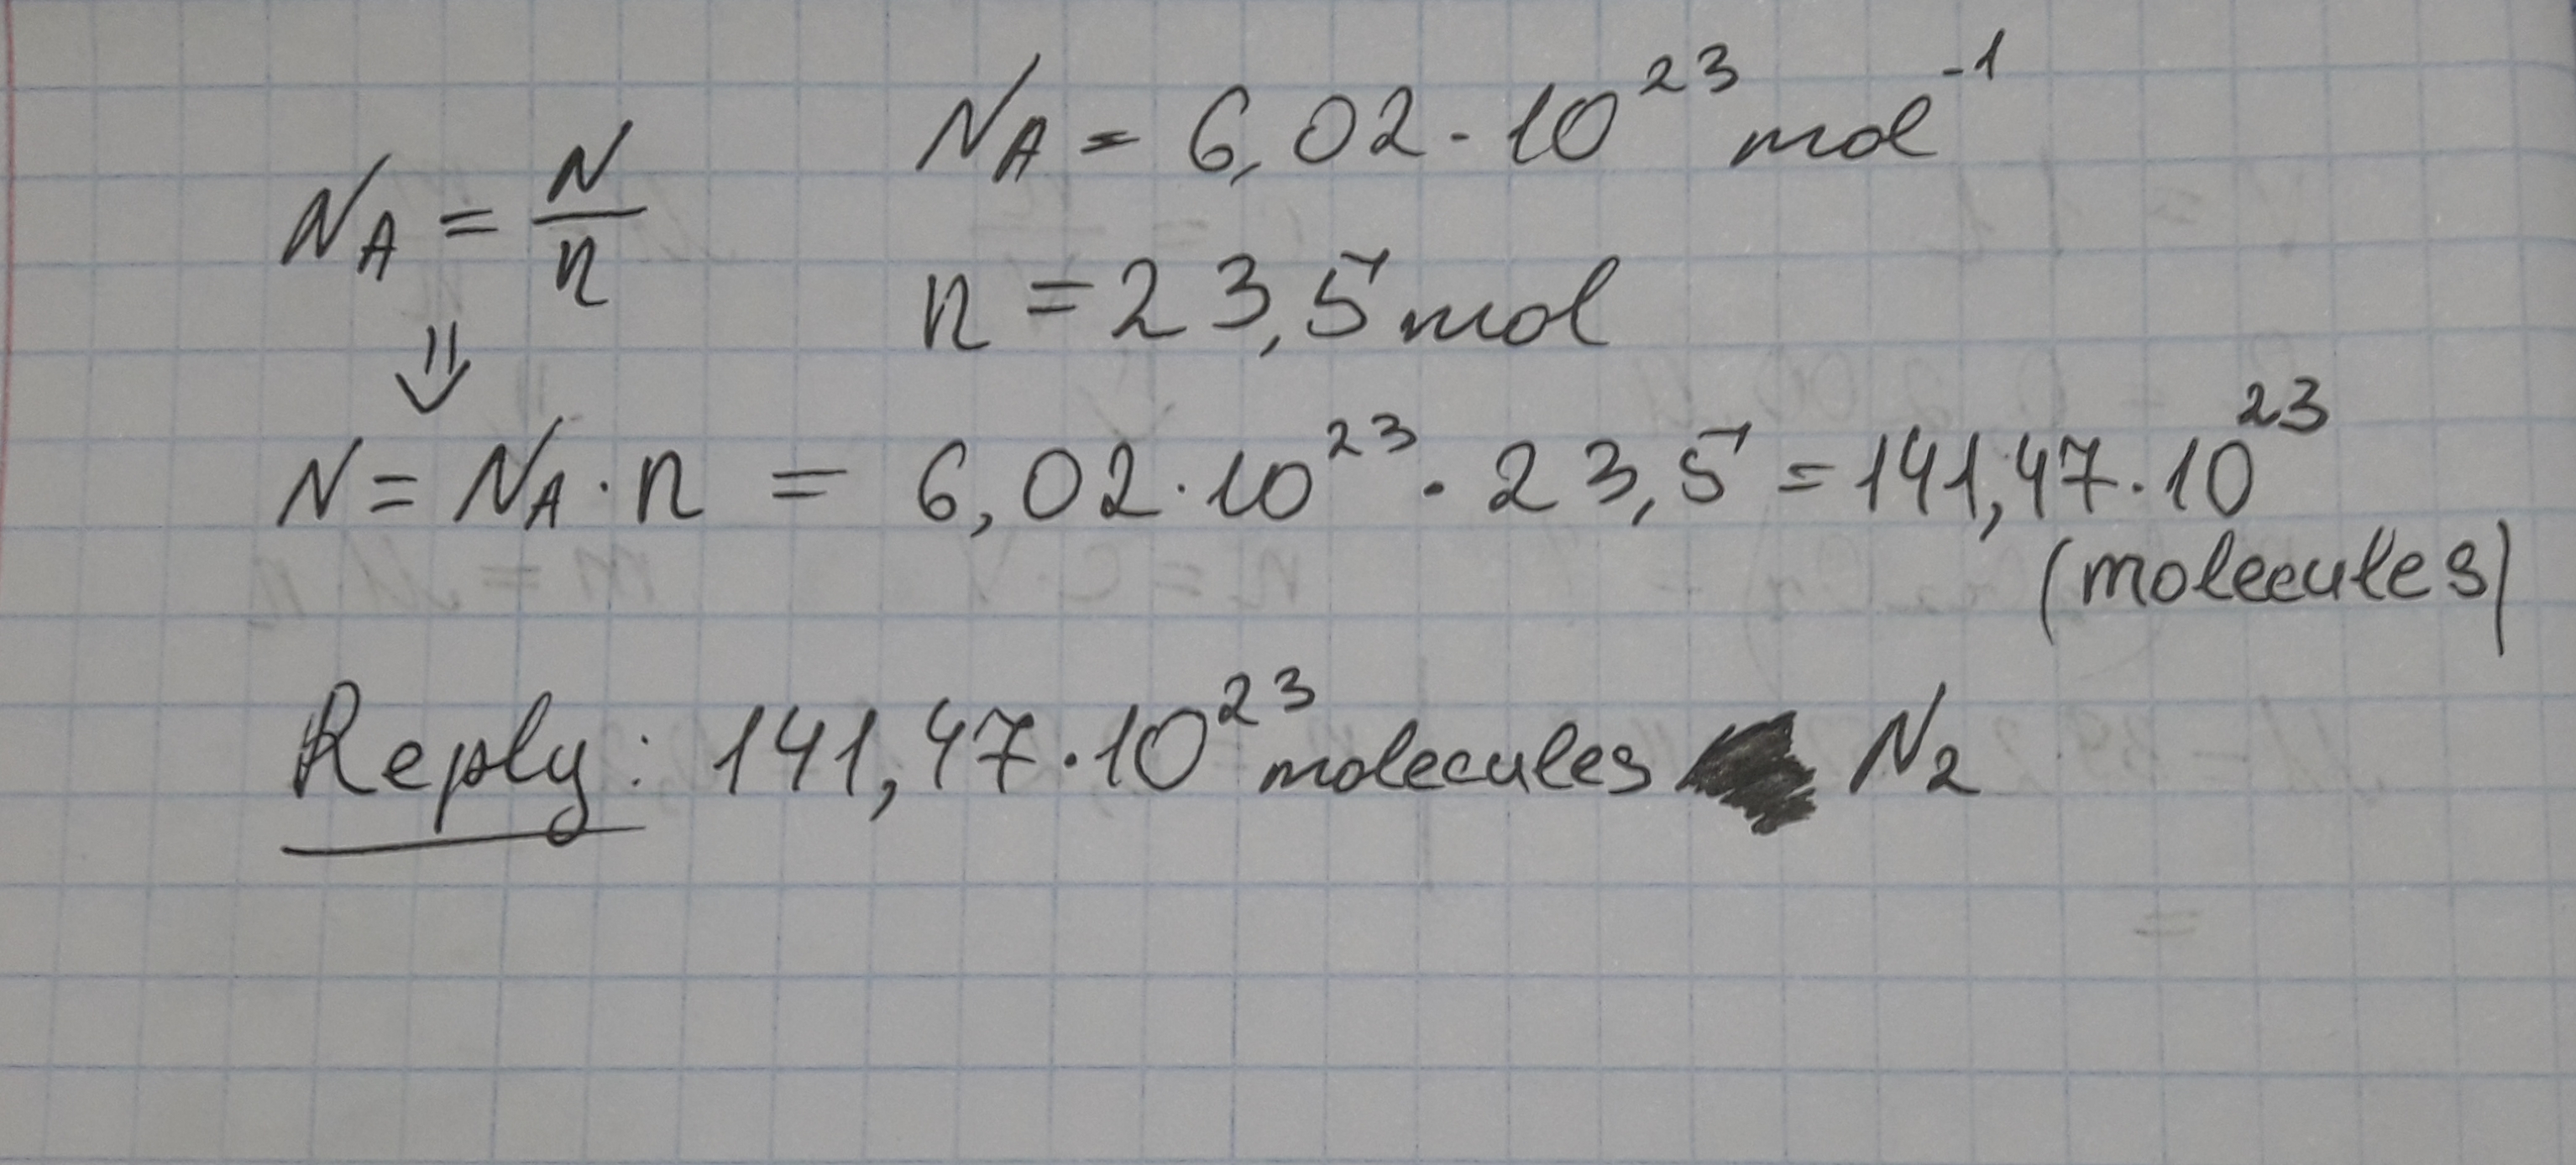 N_A = N/n
N_A = 6,02 · 10^23 mol^-1
n = 23,5 mol
⇓
N = N_A · n = 6,02 · 10^23 · 23,5 = 141,47 · 10^23
(molecules)
Reply: 141,47 · 10^23 molecules N_2